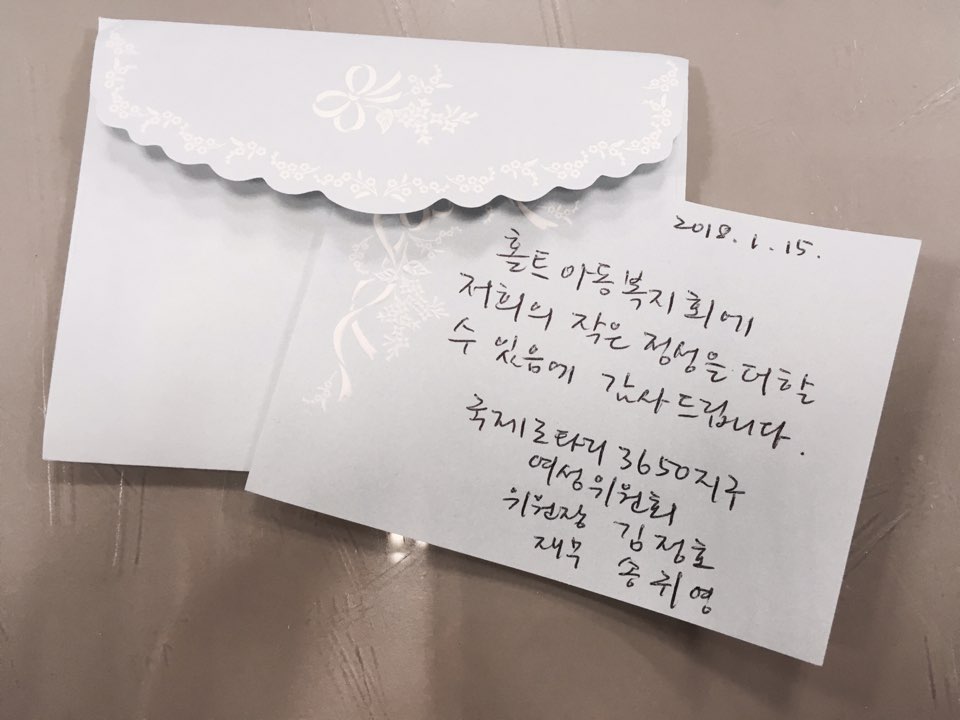 2018. 1. 15.
홀트아동복지회에
저희의 작은 정성을 더할
수 있음에 감사드립니다.
국제로타리 3650지구
여성위원회
위원장 김정호
재무 송귀영